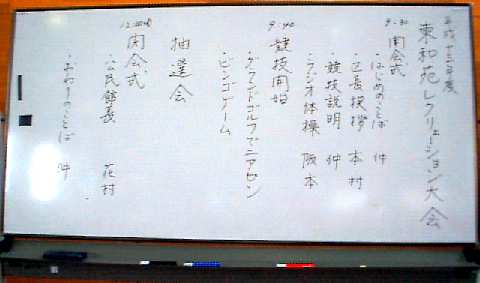 平成十三年度
東和苑レクリェーション大会
9:30
開会式
・はじめのことば 仲
・区長挨拶 本村
・競技説明 仲
・ラジオ体操 阪本
9:40
競技開始
・グランドゴルフでニアピン
・ビンゴゲーム
抽選会
12:00頃
閉会式
・公民館長 花村
・おわりのことば 仲